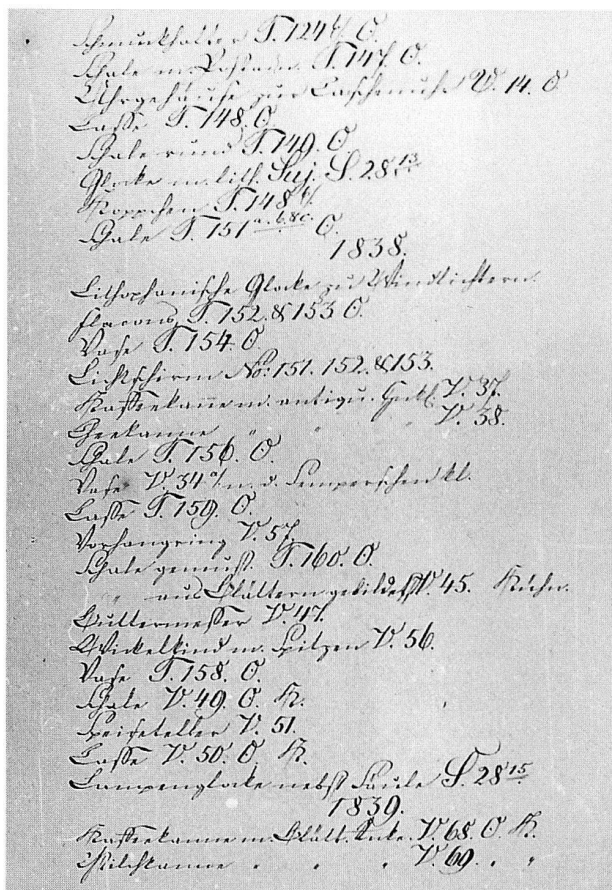 Schmuckhalter T. 124 b/ O.
Schale m. T. 147. O.
Uhrgehäuse zur Taschenuhr U. 14. O
Tasse T. 148. O.
Schale rund T. 149. O.
Glocke m. lith. Suj. S. 28 13
Koppchen T. 148 b/
Schale T. 151 a. b. & c. O.
1838.
Lithophanische Glocke zu Windlichtern.
Flacons T. 152. & 153 O.
Vase T. 154. O.
Lichtschirm No: 151. 152. & 153.
Kaffeekanne m. antiqu. Henkl. V. 37.
Theekanne " " " V. 38.
Schale T. 156. O.
Vase V. 34 a/ n. d. Semperschen kl.
Tasse T. 159. O.
Vorhangring V. 57.
Schale gemuss. T. 160. O.
" aus Blättern gebildet V. 45. Kühn.
Buttermesser V. 47.
Wickelkind m. Spitzen V. 56.
Vase T. 158. O.
Schale V. 49. O. K.
Speiseteller V. 51.
Tasse V. 50. O. K.
Lampenglocke nebst Säule S. 28 15
1839.
Kaffeekanne m. Blätt. V. 68. O. K.
Milchkanne " " " V. 69. " "